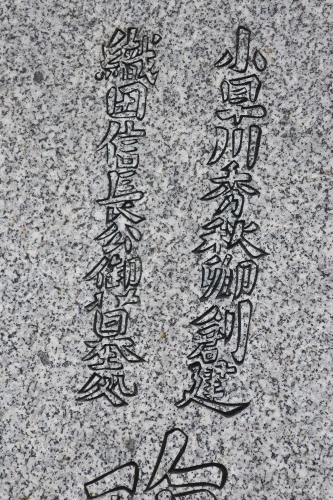 小早川秀秋卿創建
織田信長公御墓処